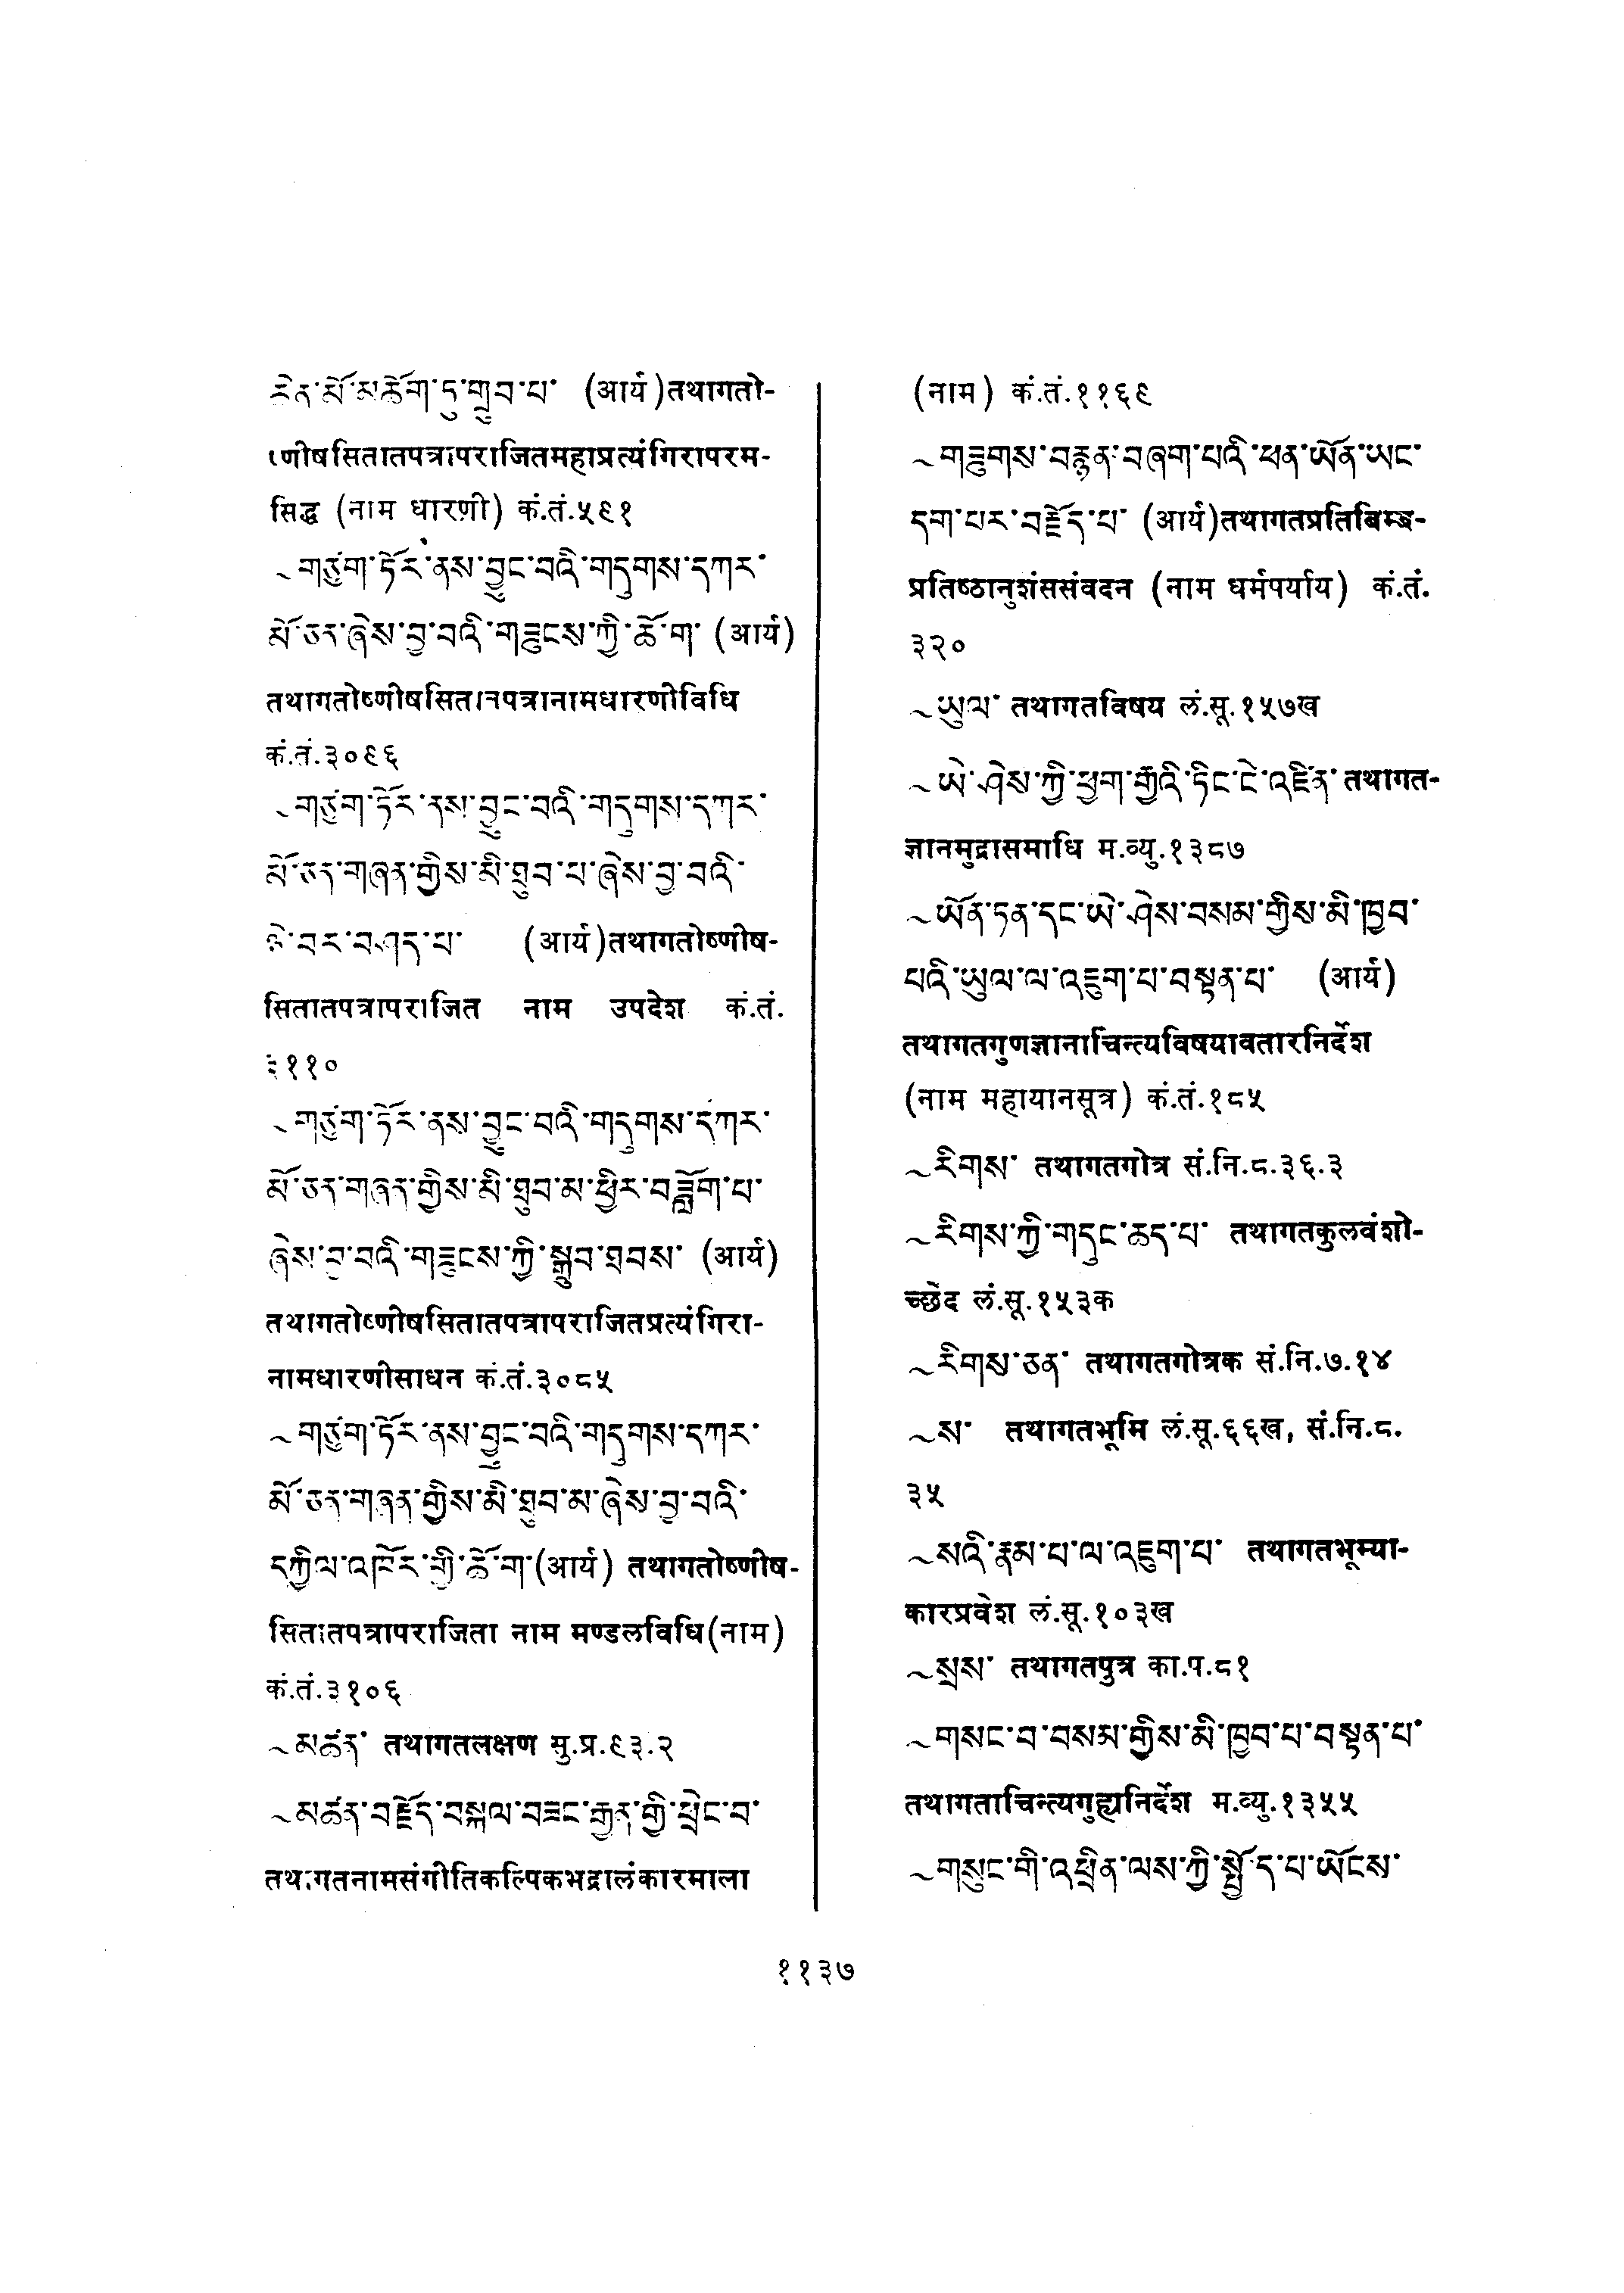 ཆེན་མོ་མཆོག་ཏུ་གྲུབ་པ་ (आर्य)तथागतो-
ष्णीषसितातपत्रापराजितमहाप्रत्यंगिरापरम-
सिद्ध (नाम धारणी) कं.तं.५९१
~གཙུག་ཏོར་ནས་བྱུང་བའི་གདུགས་དཀར་
མོ་ཅན་ཞེས་བྱ་བའི་གཟུངས་ཀྱི་ཆོ་ག་ (आर्य)
तथागतोष्णीषसितातपत्रानामधारणीविधि
कं.तं.३०९६
~གཙུག་ཏོར་ནས་བྱུང་བའི་གདུགས་དཀར་
མོ་ཅན་གཞན་གྱིས་མི་ཐུབ་པ་ཞེས་བྱ་བའི་
ཉེ་བར་བཤད་པ་ (आर्य)तथागतोष्णीष-
सितातपत्रापराजित नाम उपदेश कं.तं.
३११०
~གཙུག་ཏོར་ནས་བྱུང་བའི་གདུགས་དཀར་
མོ་ཅན་གཞན་གྱིས་མི་ཐུབ་མ་ཕྱིར་བཟློག་པ་
ཞེས་བྱ་བའི་གཟུངས་ཀྱི་སྒྲུབ་ཐབས་ (आर्य)
तथागतोष्णीषसितातपत्रापराजितप्रत्यंगिरा-
नामधारणीसाधन कं.तं.३०८५
~གཙུག་ཏོར་ནས་བྱུང་བའི་གདུགས་དཀར་
མོ་ཅན་གཞན་གྱིས་མི་ཐུབ་མ་ཞེས་བྱ་བའི་
དཀྱིལ་འཁོར་གྱི་ཆོ་ག་(आर्य) तथागतोष्णीष-
सितातपत्रापराजिता नाम मण्डलविधि(नाम)
कं.तं.३१०६
~མཚན་ तथागतलक्षण सु.प्र.९३.२
~མཚན་བརྗོད་བསྐལ་བཟང་རྒྱན་གྱི་ཕྲེང་བ་
तथागतनामसंगीतिकल्पिकभद्रालंकारमाला
(नाम) कं.तं.११६९
~གཟུགས་བརྙན་བཞག་པའི་ཕན་ཡོན་ཡང་
དག་པར་བརྗོད་པ་ (आर्य)तथागतप्रतिबिम्ब-
प्रतिष्ठानुशंससंवदन (नाम धर्मपर्याय) कं.तं.
३२०
~ཡུལ་ तथागतविषय लं.सू.१५७ख
~ཡེ་ཤེས་ཀྱི་ཕྱག་རྒྱའི་ཏིང་ངེ་འཛིན་ तथागत-
ज्ञानमुद्रासमाधि म.व्यु.१३८७
~ཡོན་ཏན་དང་ཡེ་ཤེས་བསམ་གྱིས་མི་ཁྱབ་
པའི་ཡུལ་ལ་འཇུག་པ་བསྟན་པ་ (आर्य)
तथागतगुणज्ञानाचिन्त्यविषयावतारनिर्देश
(नाम महायानसूत्र) कं.तं.१८५
~རིགས་ तथागतगोत्र सं.नि.८.३६.३
~རིགས་ཀྱི་གདུང་ཆད་པ་ तथागतकुलवंशो-
च्छेद लं.सू.१५३क
~རིགས་ཅན་ तथागतगोत्रक सं.नि.७.१४
~ས་ तथागतभूमि लं.सू.६६ख, सं.नि.८.
३५
~སའི་རྣམ་པ་ལ་འཇུག་པ་ तथागतभूम्या-
कारप्रवेश लं.सू.१०३ख
~སྲས་ तथागतपुत्र का.प.८१
~གསང་བ་བསམ་གྱིས་མི་ཁྱབ་པ་བསྟན་པ་
तथागताचिन्त्यगुह्यनिर्देश म.व्यु.१३५५
~གསུང་གི་འཕྲིན་ལས་ཀྱི་སྤྱོད་པ་ཡོངས་
११३७